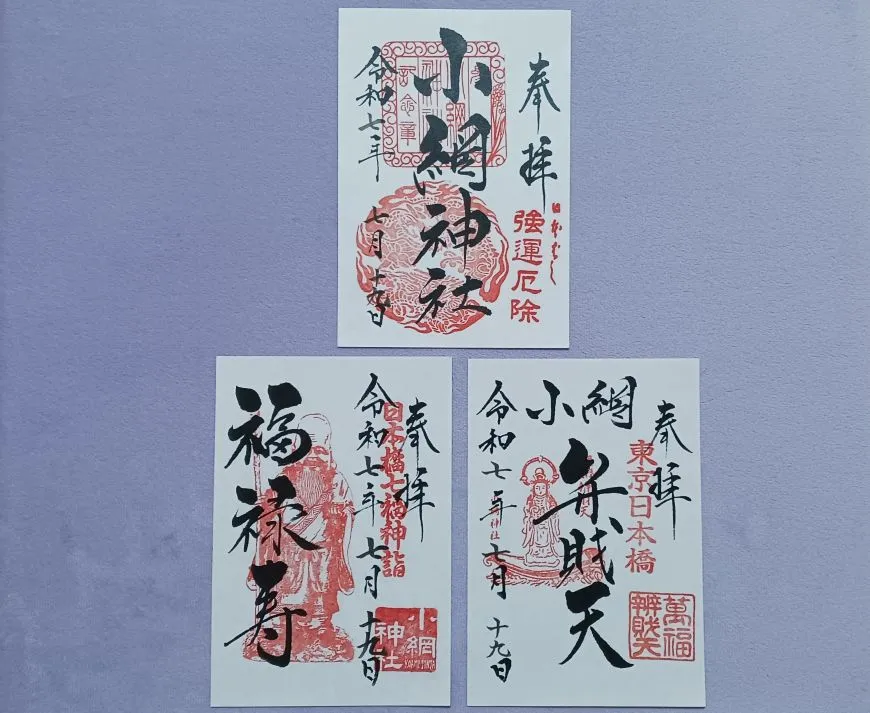 奉拝
日本ばし
強運厄除
小網神社
令和七年
七月十九日
奉拝
日本橋七福神詣
令和七年七月十九日
福禄寿
小網
神社
奉拝
東京日本橋
萬福
辨財天
小網
弁財天
令和七年七月十九日